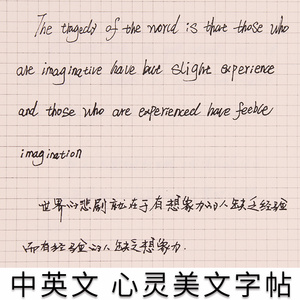 The tragedy of the world is that those who
are imaginative have but slight experience
and those who are experienced have feeble
imagination
世界的悲剧就在于有想象力的人缺乏经验
而有经验的人缺乏想象力.
中英文 心灵美文字帖